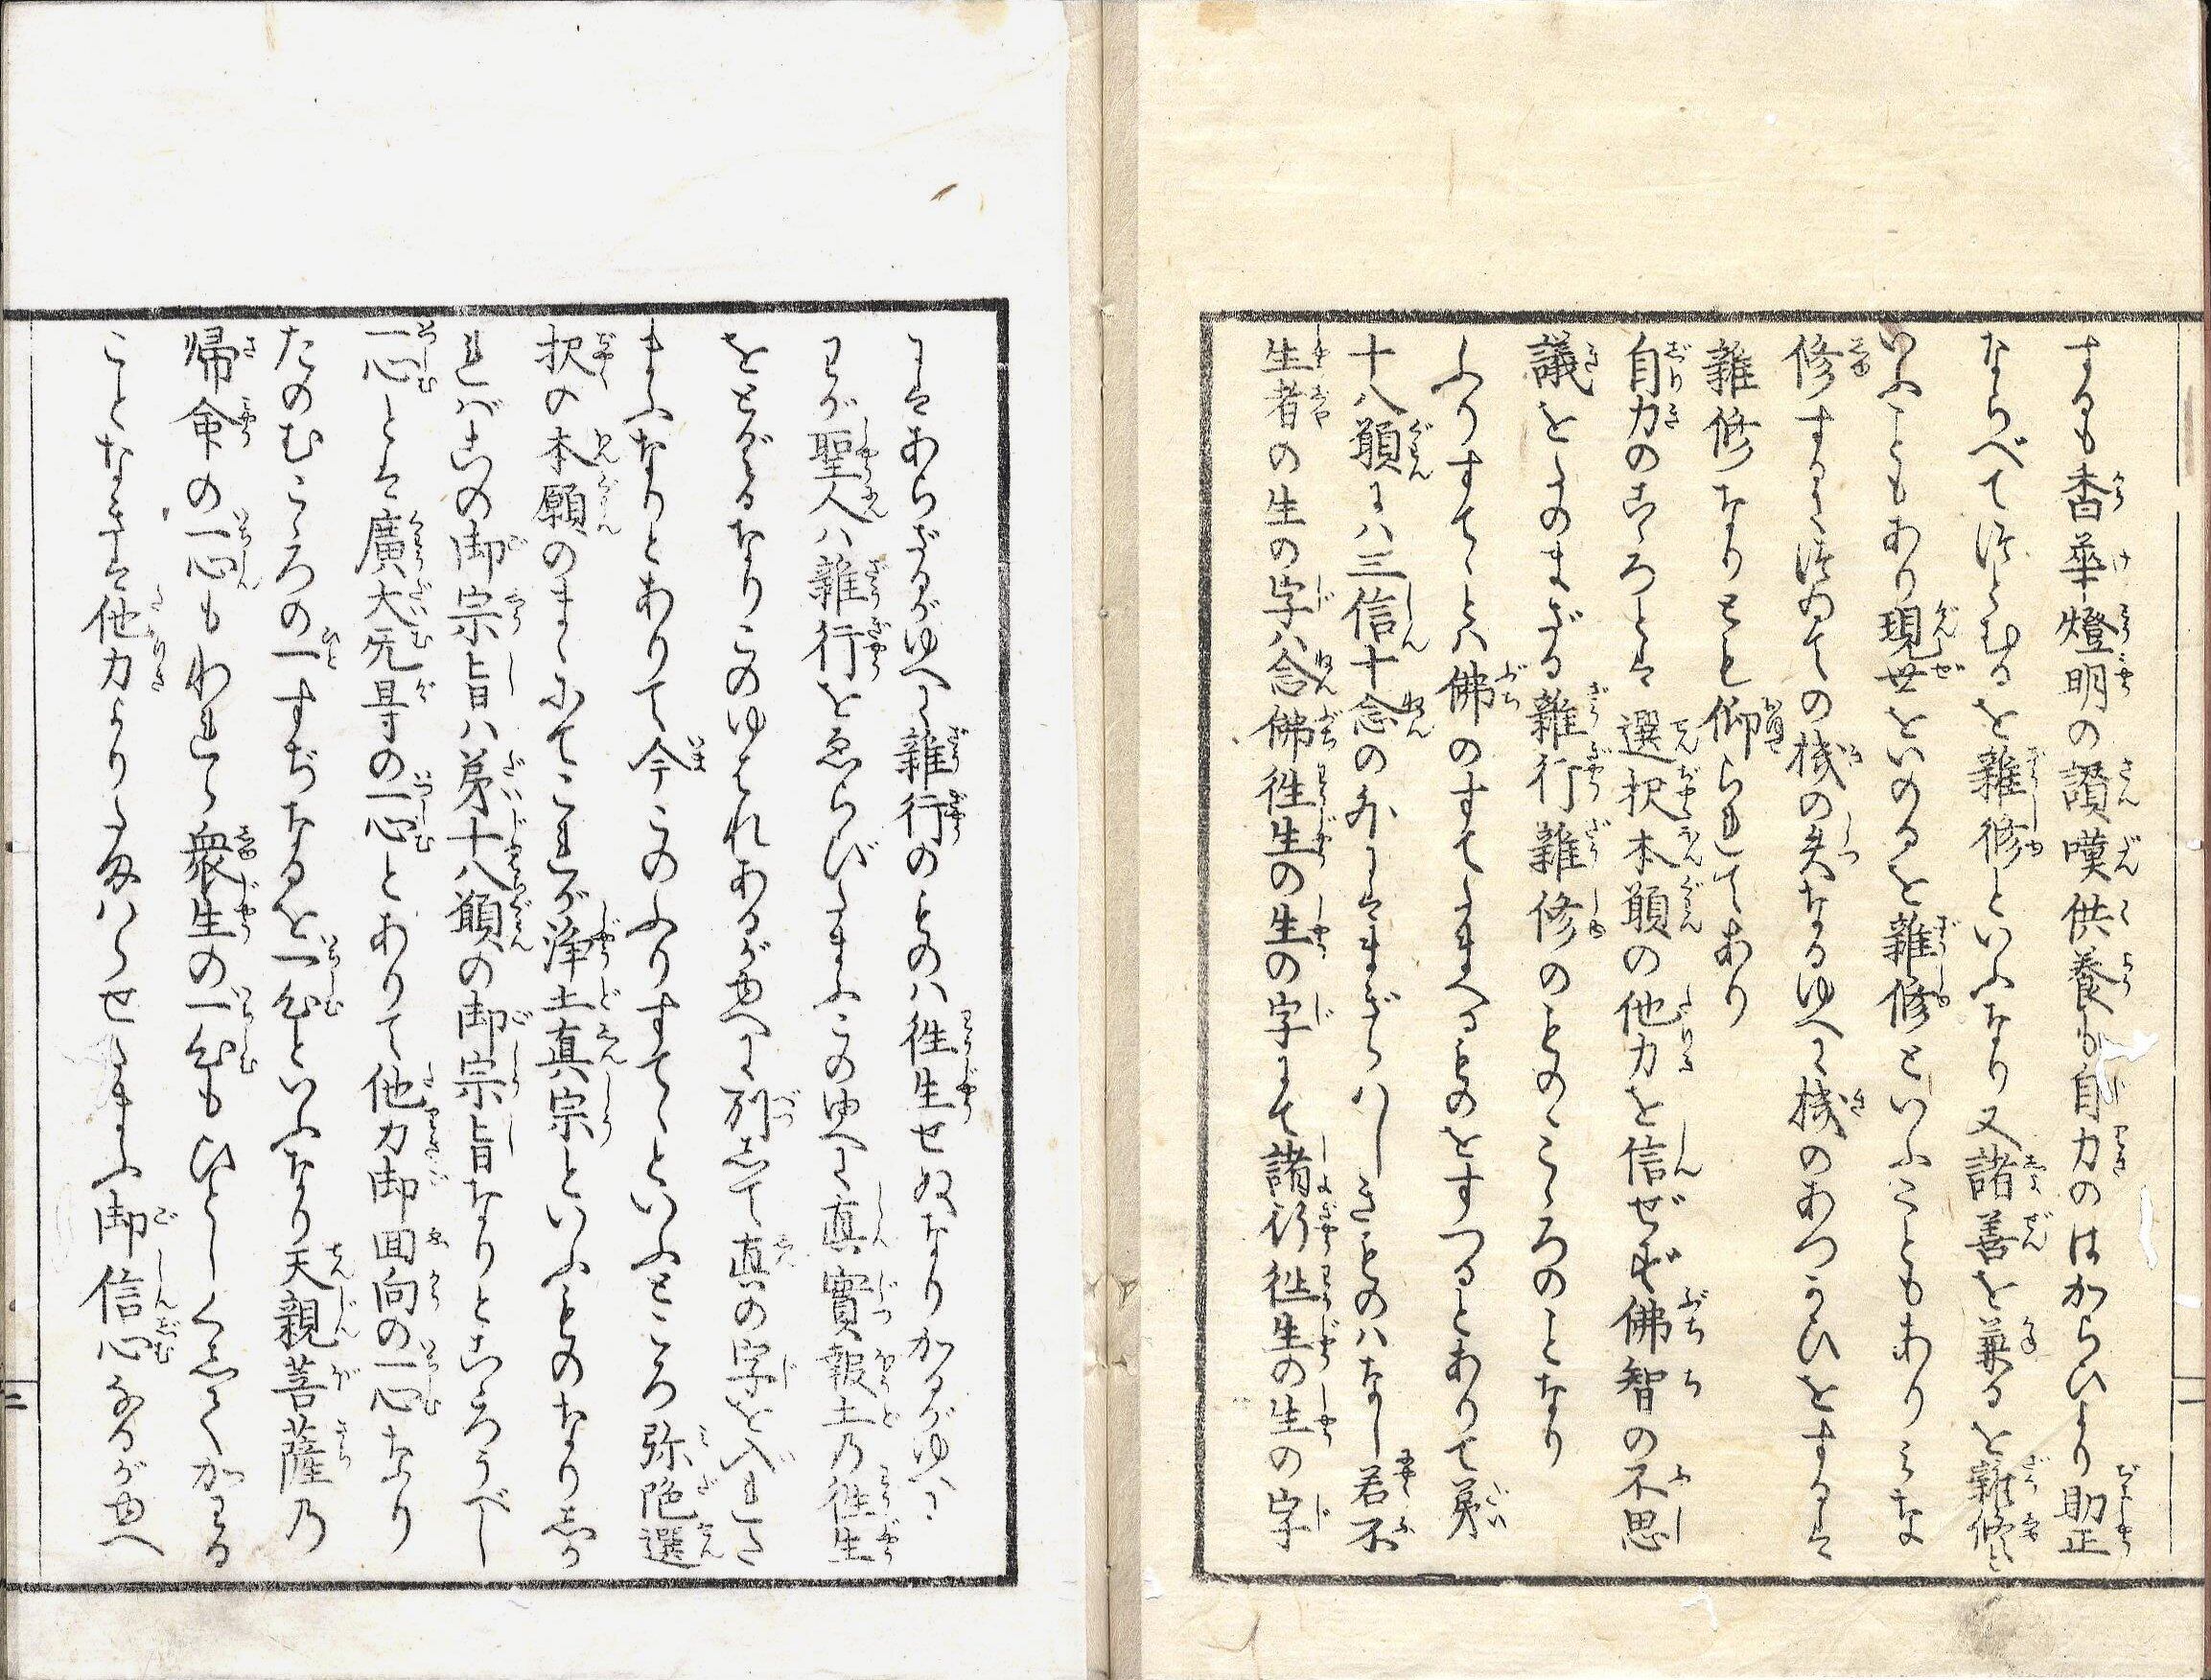 するも香華燈明の讃嘆供養も自力のはからひより助正
ならべてつとむるを雑修といふなり又諸善を兼るを雑修と
いふこともあり現世をいのるを雑修といふこともありみな
修するにつゐての機の失なるゆへに機のあつかひをするは
雑修なりとも仰られてあり
自力のこゝろとは選択本願の他力を信ぜず佛智の不思
議をたのまざる雑行雑修のものゝこゝろのことなり
ふりすてゝとハ佛のすてたまへるものをすつるとありて第
十八願にハ三信十念の外にはまぎらハしきものハなし若不
生者の生の字ハ念佛徃生の生の字にて諸行徃生の生の字
にはあらざるがゆへに雑行のものハ徃生せぬなりかるがゆへに
わが聖人ハ雑行をゑらびたまふこのゆへに真實報土乃徃生
をとぐるなりこのゆはれあるがゆへに別して真の字を入れた
まふなりとありて今このふりすてゝといふところ弥陀選
択の本願のまゝにてこれが浄土真宗といふものなりしか
れバこの御宗旨ハ第十八願の御宗旨なりとこゝろうべし
一心とは廣大无㝵の一心とありて他力御回向の一心なり
たのむこゝろの一すぢなるを一心といふなり天親菩薩乃
帰命の一心もわれら衆生の一心もひとしくしてかわる
ことなきは他力よりたまハらせたまふ御信心なるがゆへ